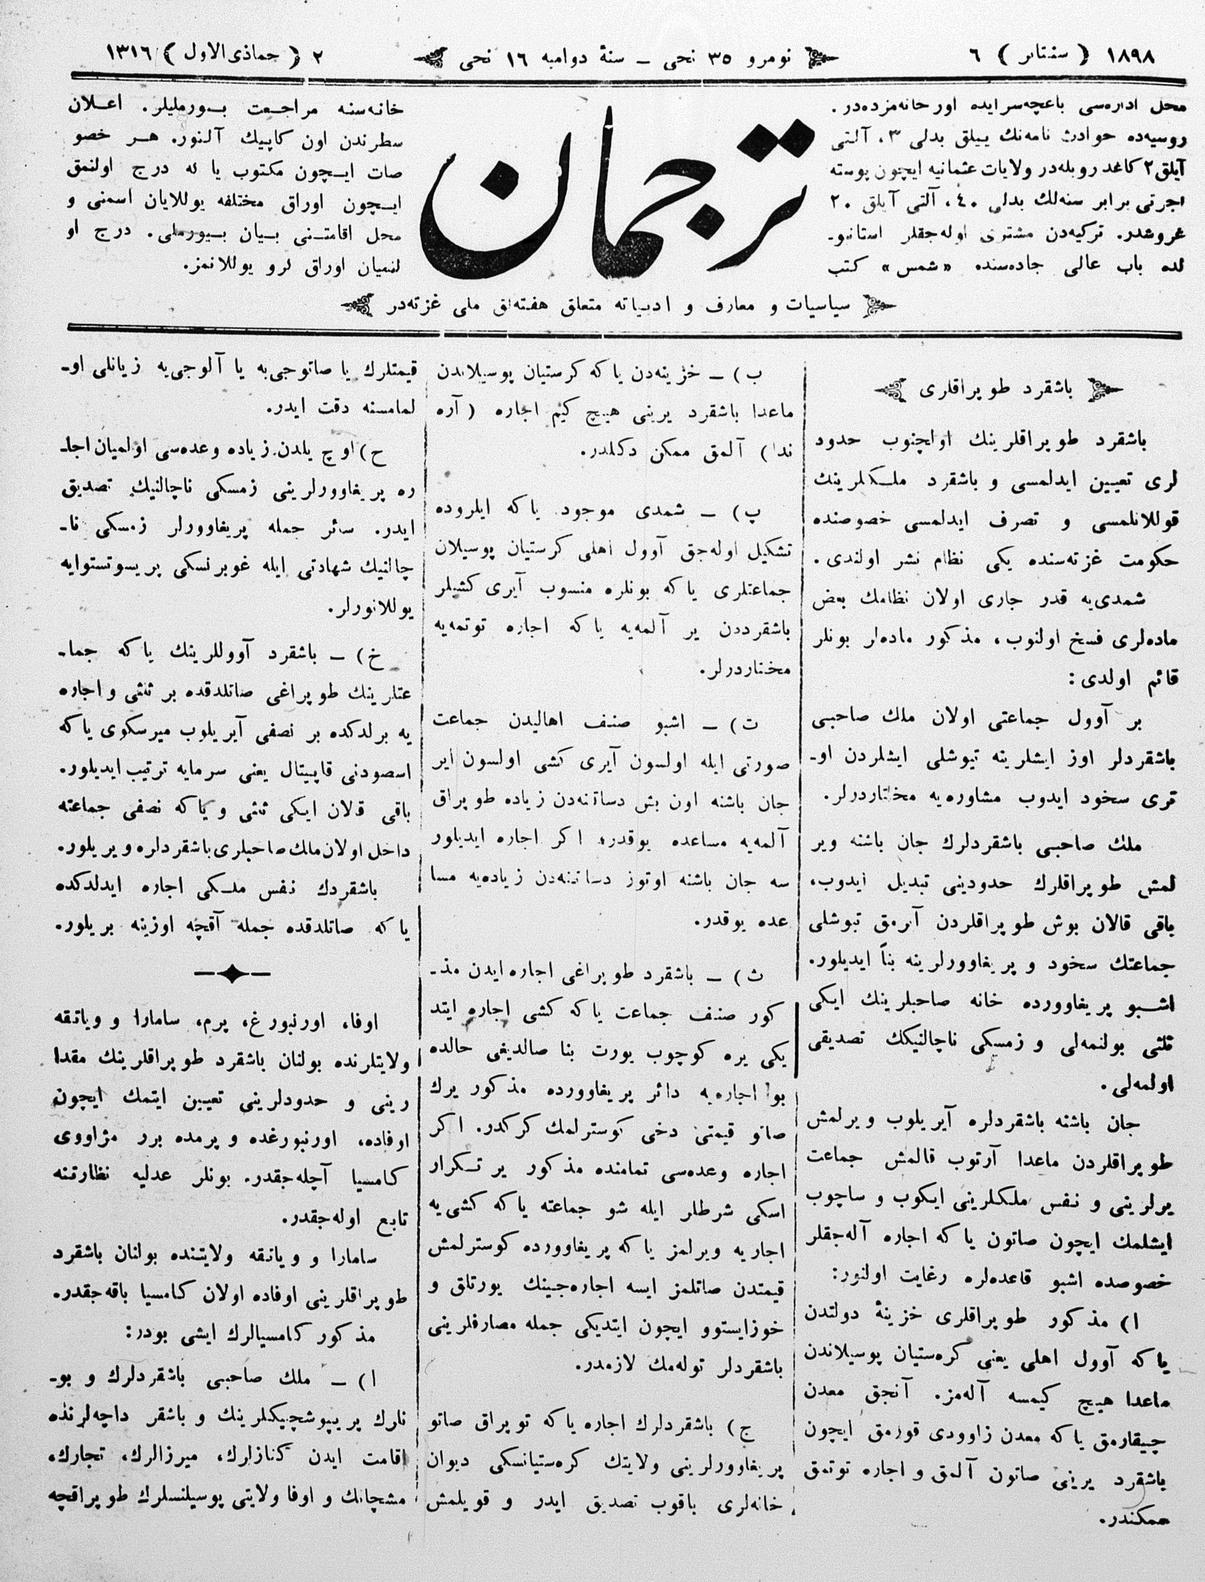 ١٨٩٨ ( سنتابر ) ٦
نومرو ٣٥ نجی ــ سنهٔ دوامیه ١٦ نجی
٢ ( جماذی الاول ) ١٣١٦
محل اداره‌سی باغچه‌سرایده اورخانه‌مزده‌در.
روسیه‌ده حوادث نامه‌نك ییللق بدلی ٣، آلتی
آیلق ٢ كاغد روبله‌در ولایات عثمانیه ایچون پوسته
اجرتی برابر سنه‌لك بدلی ٤٠، آلتی آیلق ٢٠
غروشدر. تركیه‌دن مشتری اوله‌جقلر استانبو۔
لده باب عالی جاده‌سنده «شمس» كتب
ترجمان
خانه‌سنه مراجعت بـورملیلر. اعـلان
سطرندن اون كاپیك آلنور. هـر خصو
صات ایـچون مكتوب یا له درج اولنمق
ایـچون اوراق مختلفه یوللایان اسمنی و
محل اقامتـنی بـیان بـیورملی. درج او
لنمیان اوراق كرو یوللانمز.
سیاسیات و معارف و ادبیاته متعلق هفته‌لق ملی غزته‌در
باشقرد طوپراقلری
باشقرد طوپراقلرینك اولچنوب حدود
لری تعیین ایدلمسی و باشقرد ملـكلرینك
قوللانلمسی و تصرف ایدلمسی خصوصنده
حكومت غزته‌سنده یكی نظام نشر اولندی.
شمدی‌یه قدر جاری اولان نظامك بعض
ماده‌لری فسخ اولنوب، مذكور ماده‌لر بونلر
قائم اولدی:
بر آوول جماعتی اولان ملك صاحبی
باشقردلر اوز ایشلرینه تیوشلی ایشلردن او۔
تری سخود ایدوب مشاوره‌یه مختاردرلر.
ملك صاحبی باشقردلرك جان باشنه ویر
لمش طوپراقلرك حدودینی تبدیل ایدوب،
باقی قالان بوش طوپراقلردن آلرمق تیوشلی
جماعتك سخود و پریغاوورلرینه بناً ایدیلور.
اشـبو پریغاوورده خانه صاحبلرینك ایكی
ثلثی بولنمه‌لی و زمسكی ناچالنیكك تصدیقی
اولمه‌لی.
جان باشنه باشقردلره آیریلوب ویرلمش
طوپراقلردن ماعدا آرتوب قالمش جماعت
یرلرینی و نفس ملكلرینی ایكوب و ساچوب
ایشلمك ایچون صاتون یاكه اجاره آله‌جقلر
خصوصده اشبو قاعده‌لره رغایت اولنور:
ا) مذكور طوپراقلری خزینهٔ دولتدن
یاكه آوول اهلی یعنی كره‌ستیان پوسیلاندن
ماعدا هیچ كیمسه آله‌مز. آنجق معدن
چیقارمق یاكه معدن زاوودی قورمق ایچون
باشقرد یرینی صاتون آلمق و اجاره توتمق
ممكندر.
ب) ــ خزینه‌دن یاكه كرستیان پوسیلاندن
ماعدا باشقرد یرینی هیچ كیم اجاره ( آره
ندا) آلمق ممكن دكلدر.
پ) ــ شمدی موجود یاكه ایلروده
تشكیل اوله‌جق آوول اهلی كرستیان پوسیلان
جماعتلری یاكه بونلره منسوب آیری كشیلر
باشقرددن یر آلمه‌یه یاكه اجاره توتمه‌یه
مختاردرلر.
ت) ــ اشبو صنف اهالیدن جماعت
صورتی ایله اولسون آیری كشی اولسون ایر
جان باشنه اون بش دساتنه‌دن زیاده طوپراق
آلمه‌یه مساعده یوقدر؛ اكر اجاره ایدیلور
سه جان باشنه اوتوز دساتنه‌دن زیاده‌یه مسا
عده یوقدر.
ث) ــ باشقرد طوپراغی اجاره ایدن مذ۔
كور صنف جماعت یاكه كشی اجاره ایتد
یكی یره كوچوب یورت بنا صالدیغی حالده
بو اجاره‌یه دائر پریغاوورده مذكور یرك
صاتو قیمتی دخی كوسترلمك كركدر. اكر
اجاره وعده‌سی تمامنده مذكور یر تـكرار
اسكی شرطلر ایله شو جماعته یاكه كشی‌یه
اجاریه ویرلمز یاكه پریغاوورده كوسترلمش
قیمتدن صاتلمز ایسه اجاره‌جینك یورتلق و
خوزایستوو ایچون ایتدیكی جمله مصارفلرینی
باشقردلر توله‌مك لازمدر.
ج) باشقردلرك اجاره یاكه توپراق صاتو
پریغاوورلرینی ولایتك كره‌ستیانسكی دیوان
خانه‌لری باقوب تصدیق ایدر و قویلمش
قیمتلرك یا صاتوجی‌یه یا آلوجی‌یه زیانلی او۔
لمامسنه دقت ایدر.
ح) اوچ یلدن زیاده وعده‌سی اولمیان اجا۔
ره پریغاوورلرینی زمسكی ناچالنیك تصدیق
ایدر. سائر جمله پریغاوورلر زمسكی نا۔
چالنیك شهادتی ایله غوبرنسكی پریسوتستوایه
یوللانورلر.
خ) ــ باشقرد آووللرینك یاكه جما۔
عتلرینك طوپراغی صاتلدقده بر ثلثی و اجاره
یه برلدكده بر نصفی آیریلوب میرسكوی یاكه
اسصودنی قاپیتال یعنی سرمایه ترتیب ایدیلور.
باقی قلان ایكی ثلثی و یاكه نصفی جماعته
داخل اولان مالك صاحبلری باشقردلره ویریلور.
باشقردك نفس ملـكی اجاره ایدلدكده
یاكه صاتلدقده جمله آقچه اوزینه بریلور.
اوفا، اورنبورغ، پرم، سامارا و ویاتقه
ولایتلرنده بولنان باشقرد طوپراقلرینك مقدا
رینی و حدودلرینی تعیین ایتمك ایچون
اوفاده، اورنبورغده و پرمده برر مژاووی
كامسیا آچله‌جقدر. بونلر عدلیه نظارتنه
تابع اوله‌جقدر.
سامارا و ویاتقه ولایتنده بولنان باشقرد
طوپراقلرینی اوفاده اولان كامسیا باقه‌جقدر.
مذكور كامسیالرك ایشی بودر:
ا) ــ ملك صاحبی باشقردلرك و بو۔
نلرك پریپوشچیكلرینك و باشقر داچه‌لرنده
اقامت ایدن كنازلرك، میرزالرك، تجارك،
مشچانك و اوفا ولایتی پوسیلنسلرك طوپراقچه